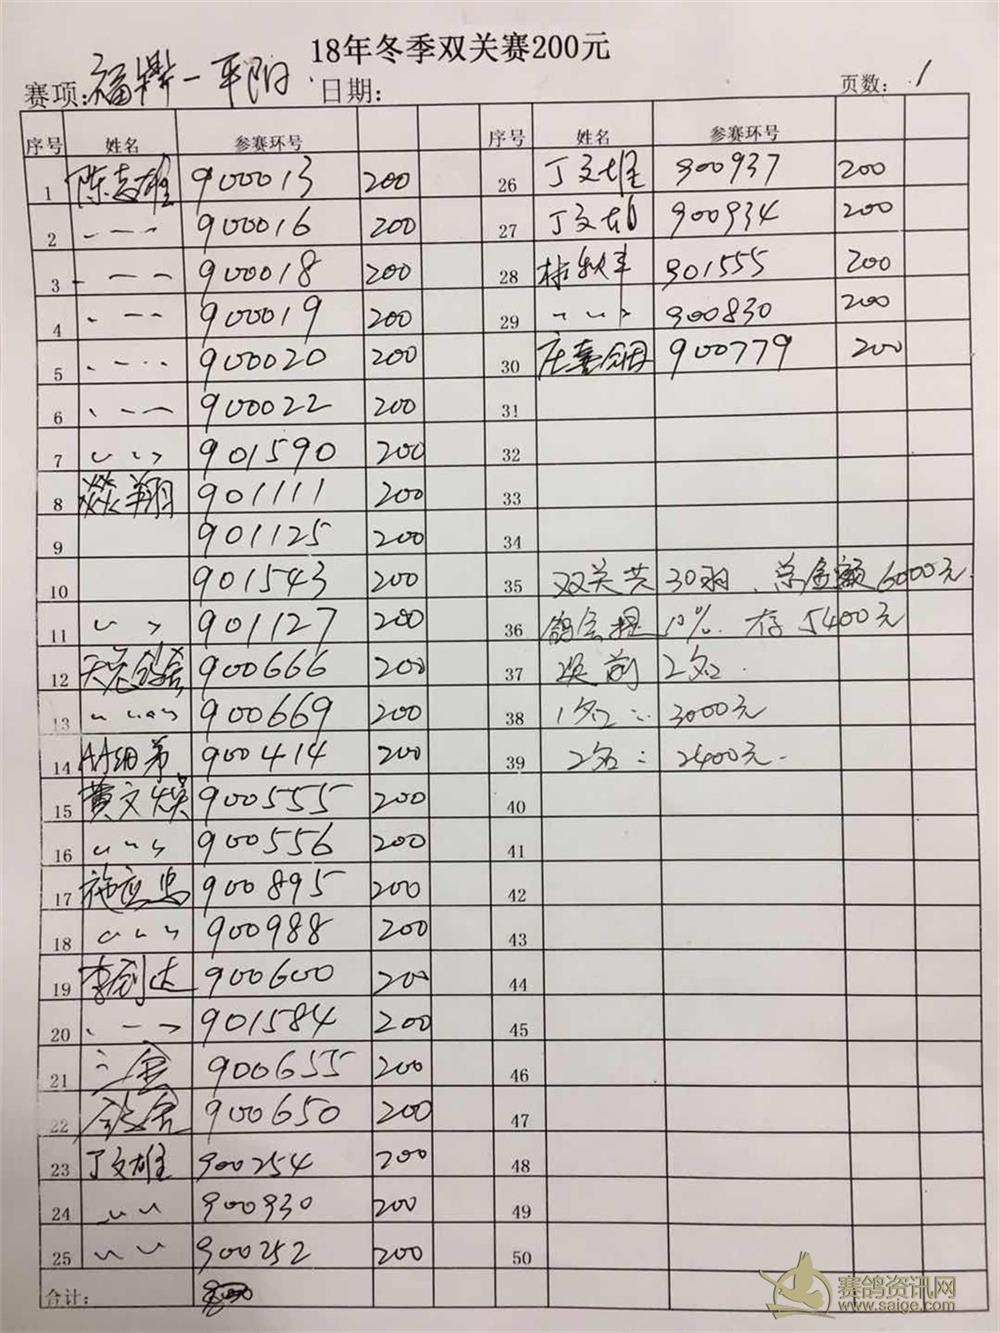 18年冬季双关赛200元
赛项:福鼎-平阳 日期: 页数: 1
序号 姓名 参赛环号 序号 姓名 参赛环号
1 陈志雄 900013 200 26 丁文雄 900937 200
2 - - - 900016 200 27 丁文雄 900934 200
3 - - - 900018 200 28 901555 200
4 - - - 900019 200 29 〃 900830 200
5 - - - 900020 200 30 900779 200
6 - - - 900022 200 31
7 〃 901590 200 32
8 燚翔 901111 200 33
9 901125 200 34
10 901543 200 35 双关共30羽、总金额6000元.
11 〃 901127 200 36 鸽会提10%. 存5400元
12 900666 200 37 奖前2名.
13 〃 900669 200 38 1名: 3000元
14 AA细弟 900414 200 39 2名: 2400元.
15 黄文焕 900555 200 40
16 〃 900556 200 41
17 900895 200 42
18 〃 900988 200 43
19 李创达 900600 200 44
20 - - - 901584 200 45
21 900655 200 46
22 900650 200 47
23 丁文雄 900254 200 48
24 〃 900930 200 49
25 〃 900252 200 50
合计:
赛鸽资讯网
www.saige.com